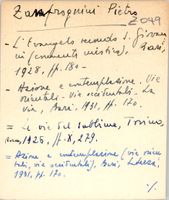 Zampragnini Pietro
Z049
- L'Evangelo secondo S. Giovanni
(commento mistico), Bari,
1928, pp. 180 -
- Azione e contemplazione. Vie
orientali. Vie occidentali. La
via, Bari, 1931, pp. 170.
= Le vie del sublime, Torino,
1928, pp. 8, 279.
= Azione e contemplazione (vie orien
tali, vie occidentali), Bari, Laterza,
1931, pp. 170.
./.